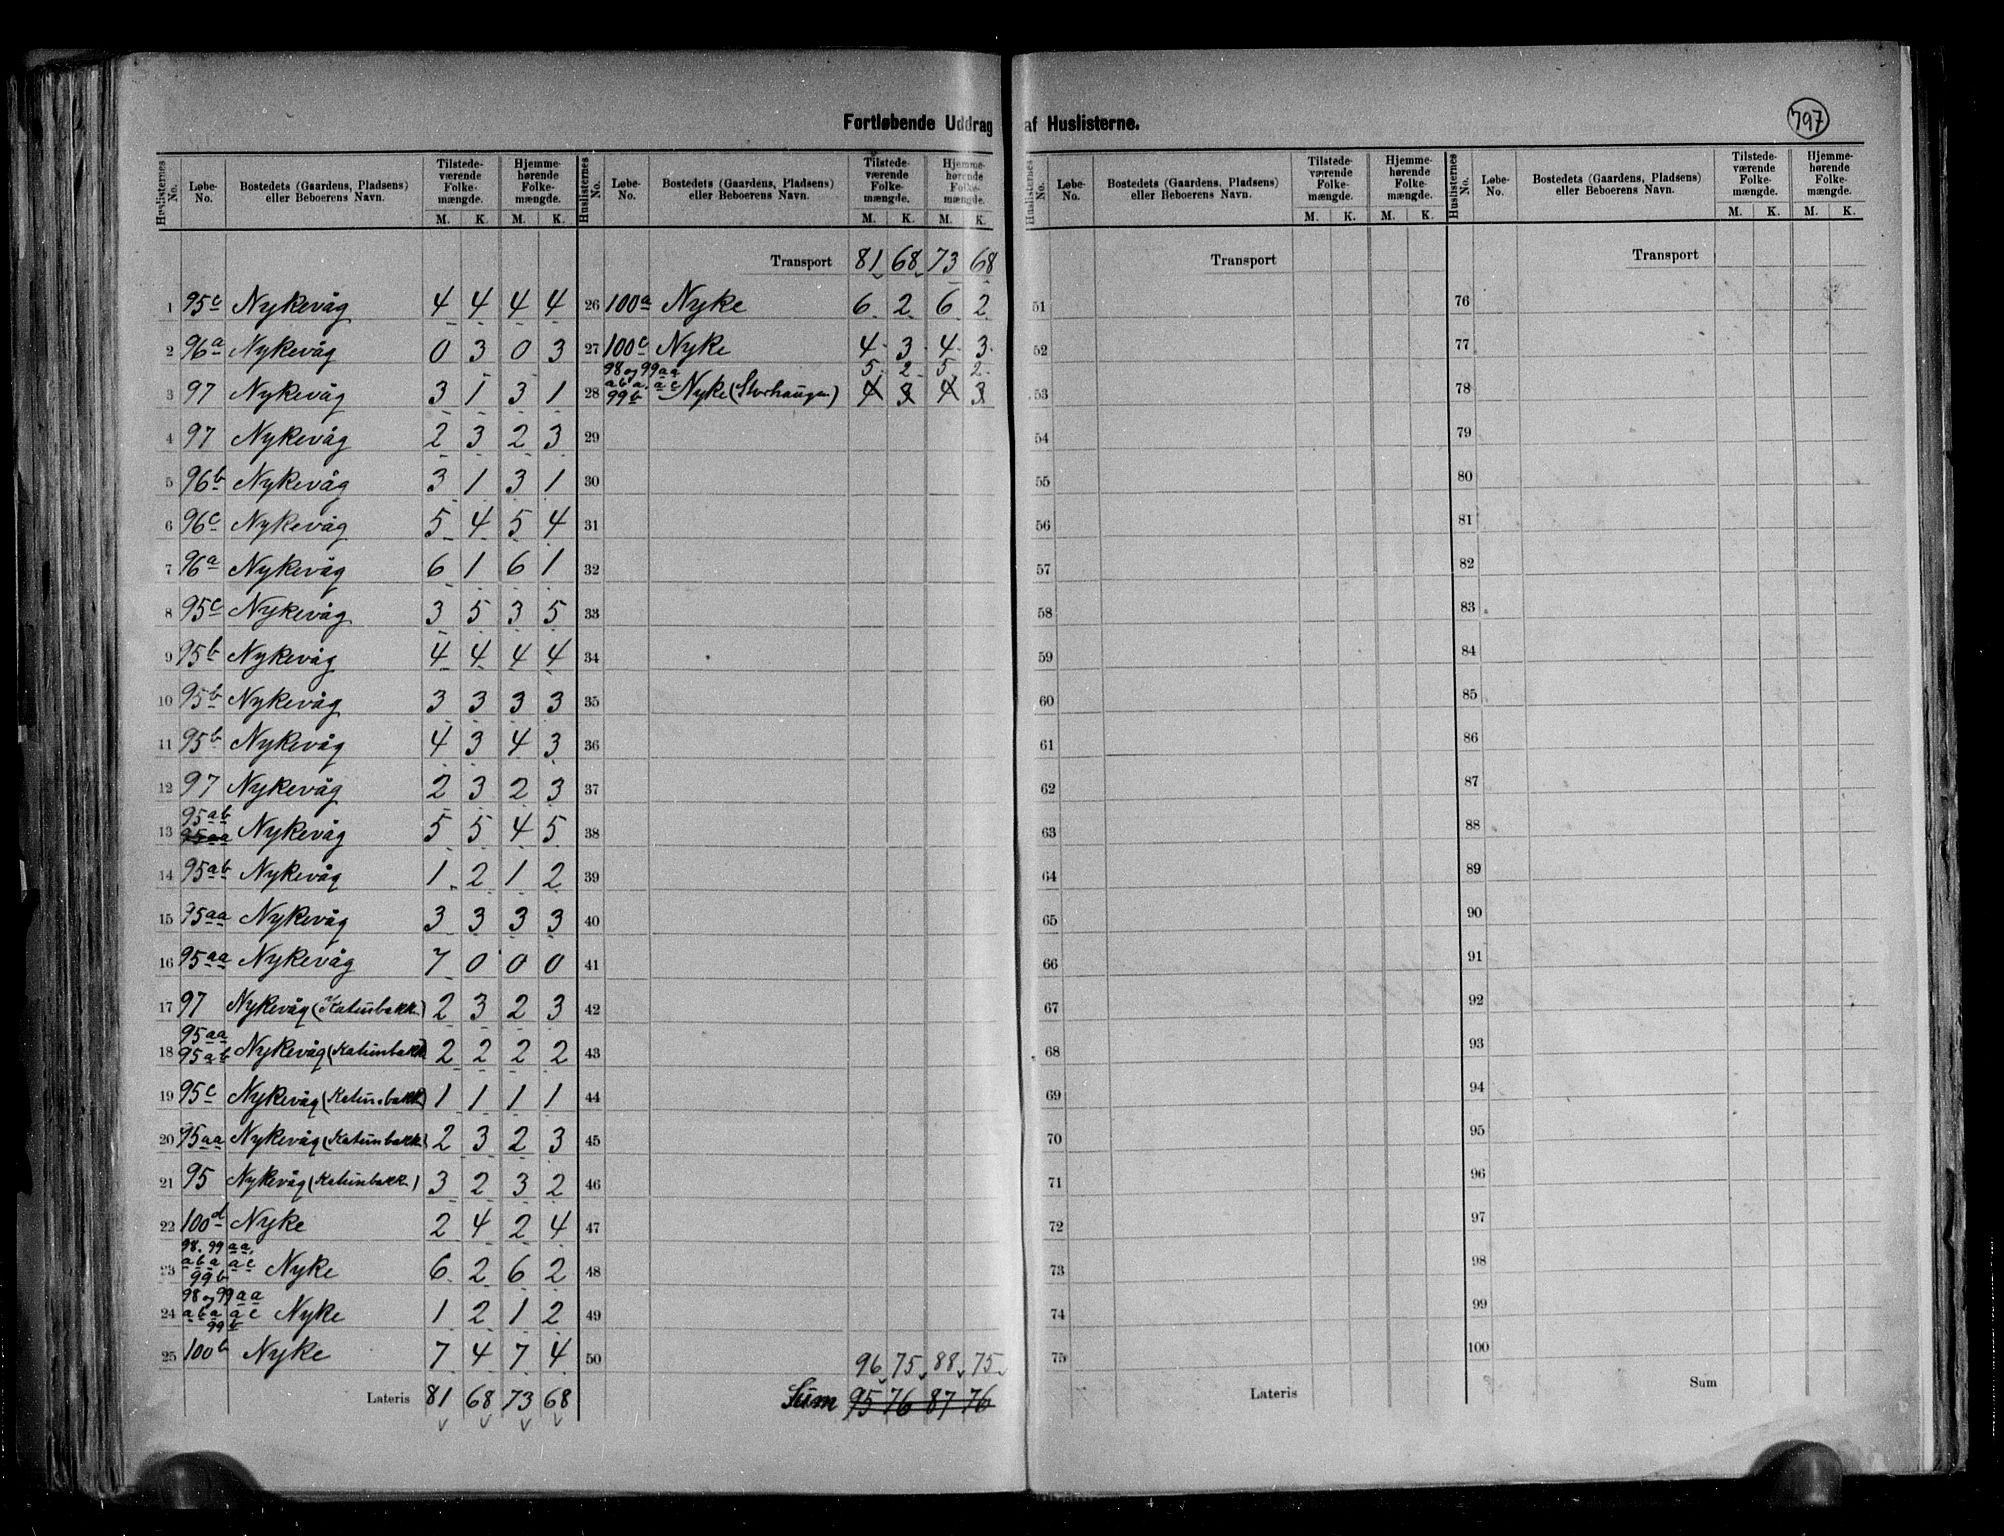 Fortløbende Uddrag af Huslisterne.
797
Huslisternes No. Løbe-No. Bostedets (Gaardens, Pladsens) eller Beboerens Navn. Tilstedeværende Folkemængde. M. K. Hjemmehørende Folkemængde. M. K.
1 95c Nykevåg 4 4 4 4
2 96a Nykevåg 0 3 0 3
3 97 Nykevåg 3 1 3 1
4 97 Nykevåg 2 3 2 3
5 96b Nykevåg 3 1 3 1
6 96c Nykevåg 5 4 5 4
7 96a Nykevåg 6 1 6 1
8 95c Nykevåg 3 5 3 5
9 95b Nykevåg 4 4 4 4
10 95b Nykevåg 3 3 3 3
11 95b Nykevåg 4 3 4 3
12 97 Nykevåg 2 3 2 3
95ab
13 95aa Nykevåg 5 5 4 5
14 95ab Nykevåg 1 2 1 2
15 95aa Nykevåg 3 3 3 3
16 95aa Nykevåg 7 0 0 0
17 97 Nykevåg (Katunbakk.) 2 3 2 3
95aa
18 95ab Nykevåg (Katunbakk 2 2 2 2
19 95c Nykevåg (Katunbakk) 1 1 1 1
20 95aa Nykevåg (Katunbakk) 2 3 2 3
21 95 Nykevåg (Katunbakk) 3 2 3 2
22 100d Nyke 2 4 2 4
98. 99 aa.
23 ab a ac Nyke 6 2 6 2
99b
98 og 99 aa
24 ab a ac Nyke 1 2 1 2
99b
25 100b Nyke 7 4 7 4
Lateris 81 68 73 68
Huslisternes No. Løbe-No. Bostedets (Gaardens, Pladsens) eller Beboerens Navn. Tilstedeværende Folkemængde. M. K. Hjemmehørende Folkemængde. M. K.
Transport 81 68 73 68
26 100a Nyke 6 2 6 2
27 100c Nyke 4 3 4 3
98 og 99 aa 5 2 5 2
28 ab a. ac Nyke (Storhaugen) 4 3 4 3
99b
29
30
31
32
33
34
35
36
37
38
39
40
41
42
43
44
45
46
47
48
49
50 96 75 88 75
Sum 95 76 87 76
Huslisternes No. Løbe-No. Bostedets (Gaardens, Pladsens) eller Beboerens Navn. Tilstedeværende Folkemængde. M. K. Hjemmehørende Folkemængde. M. K.
Transport
51
52
53
54
55
56
57
58
59
60
61
62
63
64
65
66
67
68
69
70
71
72
73
74
75
Lateris
Huslisternes No. Løbe-No. Bostedets (Gaardens, Pladsens) eller Beboerens Navn. Tilstedeværende Folkemængde. M. K. Hjemmehørende Folkemængde. M. K.
Transport
76
77
78
79
80
81
82
83
84
85
86
87
88
89
90
91
92
93
94
95
96
97
98
99
100
Sum